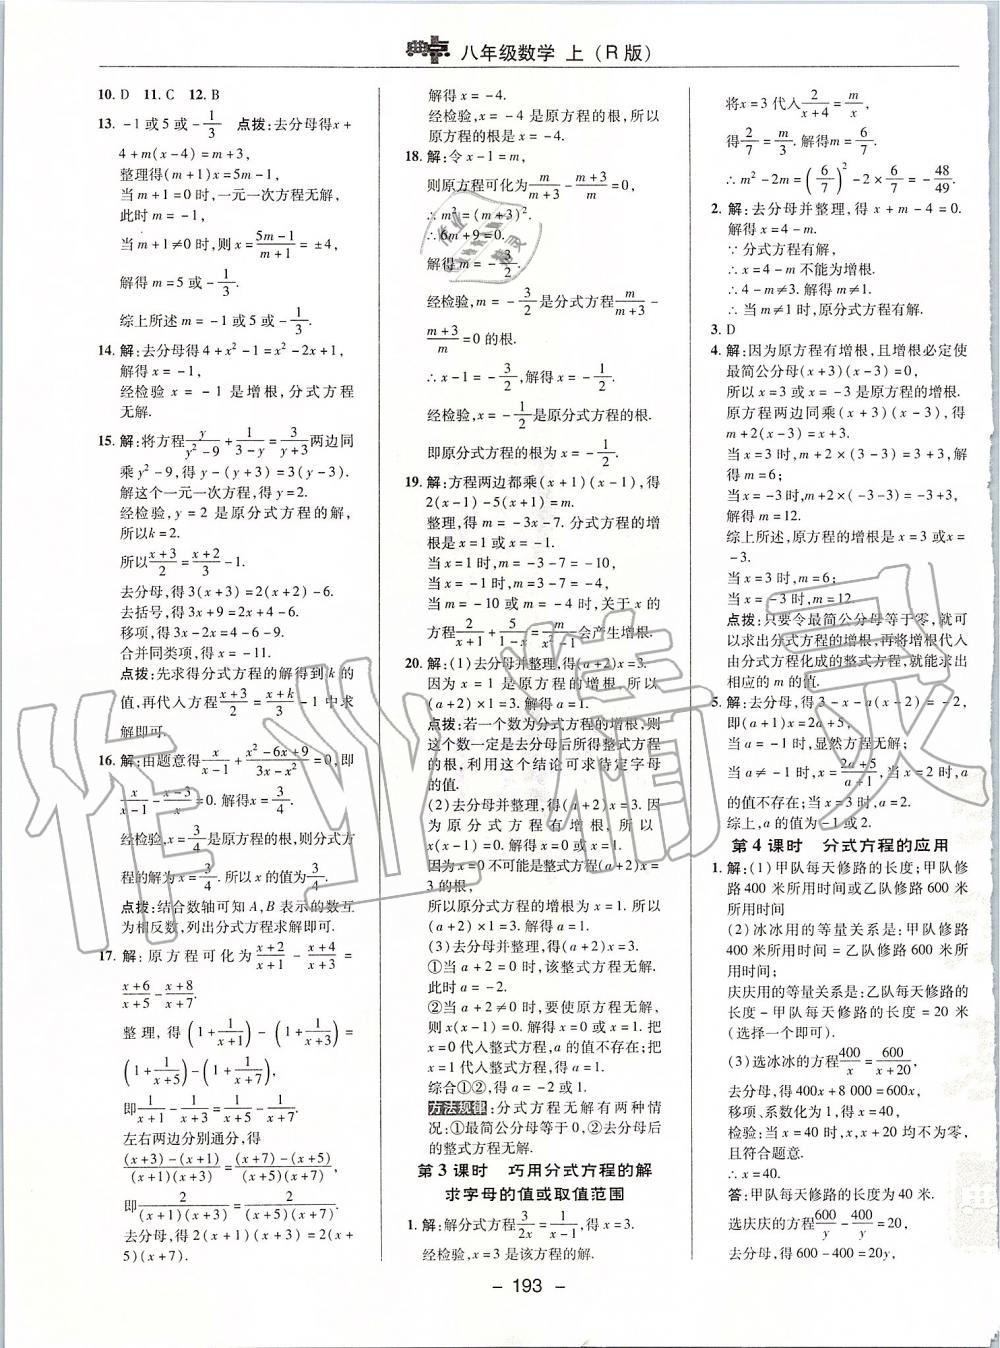 典点 八年级数学 上 (R 版)
10. D 11. C 12. B
13. -1或5或-1/3 点拨:去分母得x+
4+m(x-4)=m+3,
整理得(m+1)x=5m-1,
当m+1=0时,一元一次方程无解,
此时m=-1,
当m+1≠0时,则x=(5m-1)/(m+1)=±4,
解得m=5或-1/3.
综上所述m=-1或5或-1/3.
14. 解:去分母得4+x²-1=x²-2x+1,
解得x=-1,
经检验x=-1是增根,分式方程
无解.
15. 解:将方程y/(y²-9)+1/(3-y)=3/(y+3)两边同
乘y²-9,得y-(y+3)=3(y-3).
解这个一元一次方程,得y=2.
经检验,y=2是原分式方程的解,
所以k=2.
所以(x+3)/2=(x+2)/3-1.
去分母,得3(x+3)=2(x+2)-6.
去括号,得3x+9=2x+4-6.
移项,得3x-2x=4-6-9.
合并同类项,得x=-11.
点拨:先求得分式方程的解得到k的
值,再代入方程(x+3)/2=(x+k)/3-1中求
解即可.
16. 解:由题意得x/(x-1)+(x²-6x+9)/(3x-x²)=0,即
x/(x-1)-(x-3)/x=0.解得x=3/4.
经检验,x=3/4是原方程的根,则分式方
程的解为x=3/4.所以x的值为3/4.
点拨:结合数轴可知A,B表示的数互
为相反数,列出分式方程求解即可.
17. 解:原方程可化为(x+2)/(x+1)-(x+4)/(x+3)=
(x+6)/(x+5)-(x+8)/(x+7).
整理,得(1+1/(x+1))-(1+1/(x+3))=
(1+1/(x+5))-(1+1/(x+7)),
即1/(x+1)-1/(x+3)=1/(x+5)-1/(x+7).
左右两边分别通分,得
((x+3)-(x+1))/((x+1)(x+3))=((x+7)-(x+5))/((x+5)(x+7)),
即2/((x+1)(x+3))=2/((x+5)(x+7)).
去分母,得2(x+1)(x+3)=2(x+
5)(x+7).
解得x=-4.
经检验,x=-4是原方程的根,所以
原方程的根是x=-4.
18. 解:令x-1=m,
则原方程可化为m/(m+3)-(m+3)/m=0,
∴m²=(m+3)².
∴6m+9=0.
解得m=-3/2.
经检验,m=-3/2是分式方程m/(m+3)-
(m+3)/m=0的根.
∴x-1=-3/2,解得x=-1/2.
经检验,x=-1/2是原分式方程的根.
即原分式方程的解为x=-1/2.
19. 解:方程两边都乘(x+1)(x-1),得
2(x-1)-5(x+1)=m.
整理,得m=-3x-7.分式方程的增
根是x=1或x=-1.
当x=1时,m=-3-7=-10,
当x=-1时,m=3-7=-4,
当m=-10或m=-4时,关于x的
方程2/(x+1)+5/(1-x)=m/(x²-1)会产生增根.
20. 解:(1)去分母并整理,得(a+2)x=3.
因为x=1是原方程的增根,所以
(a+2)×1=3.解得a=1.
点拨:若一个数为分式方程的增根,则
这个数一定是去分母后所得整式方程
的根,利用这个结论可求待定字母
的值.
(2)去分母并整理,得(a+2)x=3.因
为原分式方程有增根,所以
x(x-1)=0.解得x=0或x=1.
因为x=0不可能是整式方程(a+2)x=
3的根,
所以原分式方程的增根为x=1.所以
(a+2)×1=3.解得a=1.
(3)去分母并整理,得(a+2)x=3.
①当a+2=0时,该整式方程无解.
此时a=-2.
②当a+2≠0时,要使原方程无解,
则x(x-1)=0.解得x=0或x=1.把
x=0代入整式方程,a的值不存在;把
x=1代入整式方程,得a=1.
综合①②,得a=-2或1.
方法规律:分式方程无解有两种情
况:①最简公分母等于0,②去分母后
的整式方程无解.
第3课时 巧用分式方程的解
求字母的值或取值范围
1. 解:解分式方程3/(2x)=1/(x-1),得x=3.
经检验,x=3是该方程的解.
将x=3代入2/(x+4)=m/x,
得2/7=m/3.解得m=6/7.
∴m²-2m=(6/7)²-2×6/7=-48/49.
2. 解:去分母并整理,得x+m-4=0.
解得x=4-m.
∵分式方程有解,
∴x=4-m不能为增根.
∴4-m≠3.解得m≠1.
∴当m≠1时,原分式方程有解.
3. D
4. 解:因为原方程有增根,且增根必定使
最简公分母(x+3)(x-3)=0,
所以x=3或x=-3是原方程的增根.
原方程两边同乘(x+3)(x-3),得
m+2(x-3)=x+3.
当x=3时,m+2×(3-3)=3+3,解
得m=6;
当x=-3时,m+2×(-3-3)=-3+3,
解得m=12.
综上所述,原方程的增根是x=3或x=
-3.
当x=3时,m=6;
当x=-3时,m=12.
点拨:只要令最简公分母等于零,就可
以求出分式方程的增根,再将增根代入
由分式方程化成的整式方程,就能求出
相应的m的值.
5. 解:去分母,得3-x-a(x-2)=-2,
即(a+1)x=2a+5,
当a=-1时,显然方程无解;
当a≠-1时,x=(2a+5)/(a+1),当x=2时,a
的值不存在;当x=3时,a=2.
综上,a的值为-1或2.
第4课时 分式方程的应用
1. 解:(1)甲队每天修路的长度;甲队修
路400米所用时间或乙队修路600米
所用时间
(2)冰冰用的等量关系是:甲队修路
400米所用时间=乙队修路600米所
用时间;
庆庆用的等量关系是:乙队每天修路的
长度-甲队每天修路的长度=20米
(选择一个即可).
(3)选冰冰的方程400/x=600/(x+20),
去分母,得400x+8 000=600x,
移项、系数化为1,得x=40,
检验:当x=40时,x、x+20均不为零,
且符合题意.
∴x=40.
答:甲队每天修路的长度为40米.
选庆庆的方程600/y-400/y=20,
去分母,得600-400=20y,
- 193 -
作业精灵